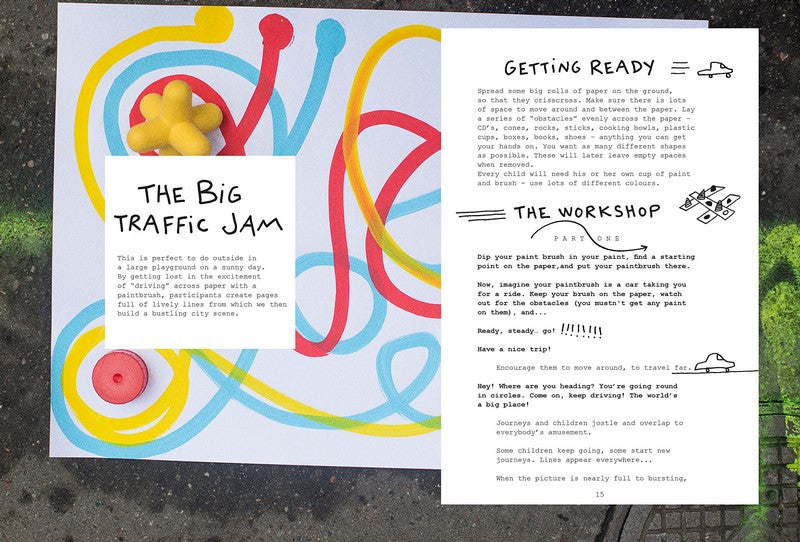 THE BIG
TRAFFIC JAM
This is perfect to do outside in
a large playground on a sunny day.
By getting lost in the excitement
of "driving" across paper with a
paintbrush, participants create pages
full of lively lines from which we then
build a bustling city scene.
GETTING READY
Spread some big rolls of paper on the ground,
so that they crisscross. Make sure there is lots
of space to move around and between the paper. Lay
a series of "obstacles" evenly across the paper –
CD's, cones, rocks, sticks, cooking bowls, plastic
cups, boxes, books, shoes – anything you can get
your hands on. You want as many different shapes
as possible. These will later leave empty spaces
when removed.
Every child will need his or her own cup of paint
and brush - use lots of different colours.
THE WORKSHOP
PART ONE
Dip your paint brush in your paint, find a starting
point on the paper,and put your paintbrush there.
Now, imagine your paintbrush is a car taking you
for a ride. Keep your brush on the paper, watch
out for the obstacles (you mustn't get any paint
on them), and...
Ready, steady… go! !!!!!!!!
Have a nice trip!
Encourage them to move around, to travel far.
Hey! Where are you heading? You're going round
in circles. Come on, keep driving! The world's
a big place!
Journeys and children jostle and overlap to
everybody's amusement.
Some children keep going, some start new
journeys. Lines appear everywhere...
When the picture is nearly full to bursting,
15